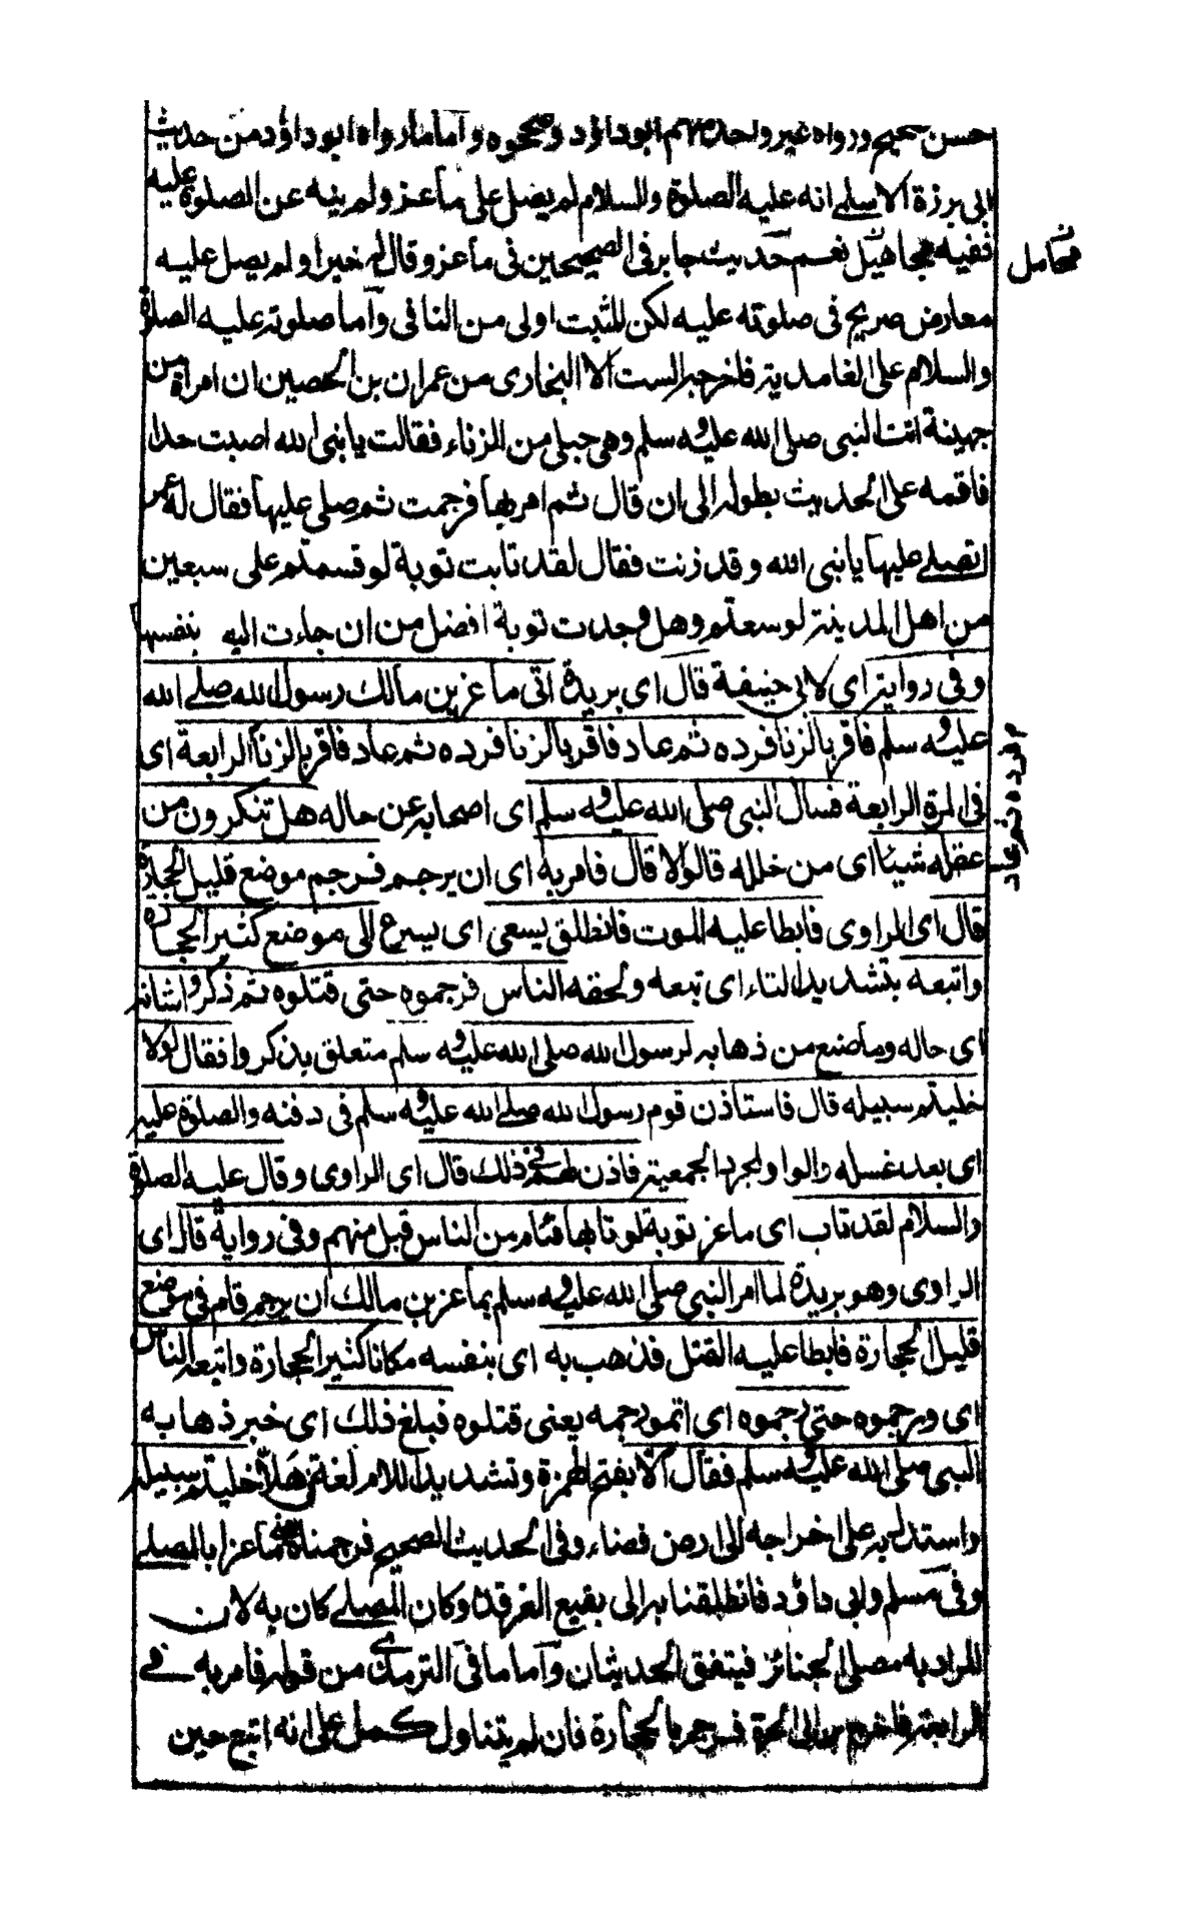 حسن صحيح ورواه غير واحد منهم ابوداؤد وصححوه وأما مارواه ابوداؤد من حديث
ابى برزة الاسلمے انه عليه الصلوة والسلام لم يصل على ماعز ولم ينه عن الصلوة عليه
ففيه مجاهيل نعم حديث جابر فى الصحيحين فى ماعز وقال له خيرا ولم يصل عليه
معارض صريح فى صلوته عليه لكن المثبت اولى من النافى وأما صلوته عليه الصلوة
والسلام على الغامدية فاخرجه الستة الا البخارى من عمران بن الحصين ان امرأة من
جهينة اتت النبى صلى الله عليه وسلم وهى حبلى من الزناء فقالت يا نبى الله اصبت حدا
فاقمه على الحديث بطوله الى ان قال ثم امر بها فرجمت ثم صلى عليها فقال له عمر
اتصلے عليها يا نبى الله وقد زنت فقال لقد تابت توبة لو قسمت على سبعين
من اهل المدينة لوسعتهم وهل وجدت توبة افضل من ان جاءت اليه بنفسها
وفى رواية اى لابى حنيفة قال اى بريدة اتى ماعز بن مالك رسول الله صلے الله
عليه وسلم فاقر بالزنا فرده ثم عاد فاقر بالزنا فرده ثم عاد فاقر بالزنا الرابعة اى
فى المرة الرابعة فسأل النبى صلى الله عليه وسلم اى اصحابه عن حاله هل تنكرون من
عقله شيئا اى من خلله قالوا لا قال فامر به اى ان يرجم فرجم موضع قليل الحجارة
قال اى الراوى فابطا عليه الموت فانطلق يسعى اى يسرع الى موضع كثير الحجارة
واتبعه بتشديد التاء اى تبعه ولحقه الناس فرجموه حتى قتلوه ثم ذكروا شانه
اى حاله وما صنع من ذهابه لرسول الله صلى الله عليه وسلم متعلق بذكروا فقال لولا
خليتم سبيله قال فاستاذن قوم رسول الله صلے الله عليه وسلم فى دفنه والصلوة عليه
اى بعد غسله فاذن لهم فى ذلك قال اى الراوى وقال عليه الصلوة
والسلام لقد تاب اى ماعز توبة لو تابها فئام من الناس قبل منهم وفى رواية قال اى
الراوى وهو بريدة لما امر النبى صلى الله عليه وسلم بماعز بن مالك ان يرجم قام فى موضع
قليل الحجارة فابطا عليه القتل فذهب به اى بنفسه مكانا كثير الحجارة واتبعه الناس
اى ورجموه حتى رجموه اى اتموا رجمه يعنى قتلوه فبلغ ذلك اى خبر ذهابه
النبى صلى الله عليه وسلم فقال ألا بفتح الهمزة وتشديد اللام لغة فى هلا خليتم سبيله
واستدل به على اخراجه الى ارض فضاء وفى الحديث الصحيح فرجمناه ماعزا بالمصلے
وفى مسلم وابى داؤد فانطلقنا به الى بقيع الغرقد وكان المصلے كان به لان
المراد به مصلى الجنائز فيتفق الحديثان وأما ما فى الترمذى من قوله فامر به فے
الرابعة فاخرج الى الحرة فرجم بالحجارة فان لم يتناول كمل على انه اتبع حين
فرده ثم عاد